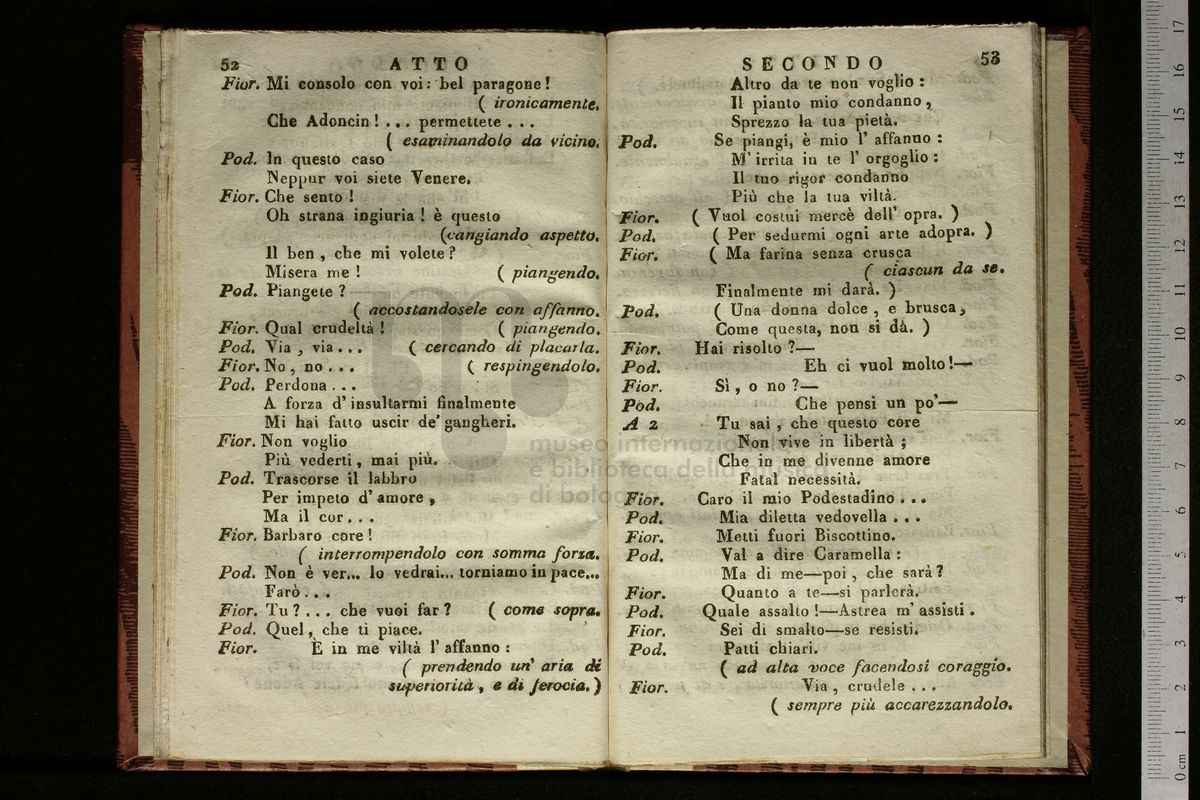 52 ATTO
Fior. Mi consolo con voi: bel paragone!
( ironicamente.
Che Adoncin! ... permettete ...
( esaminandolo da vicino.
Pod. In questo caso
Neppur voi siete Venere.
Fior. Che sento!
Oh strana ingiuria! è questo
(cangiando aspetto.
Il ben, che mi volete?
Misera me! ( piangendo.
Pod. Piangete?
( accostandosele con affanno.
Fior. Qual crudeltà! ( piangendo.
Pod. Via, via... ( cercando di placarla.
Fior. No, no... ( respingendolo.
Pod. Perdona...
A forza d' insultarmi finalmente
Mi hai fatto uscir de' gangheri.
Fior. Non voglio
Più vederti, mai più.
Pod. Trascorse il labbro
Per impeto d' amore,
Ma il cor...
Fior. Barbaro core!
( interrompendolo con somma forza.
Pod. Non è ver... lo vedrai... torniamo in pace...
Farò...
Fior. Tu?... che vuoi far? ( come sopra.
Pod. Quel, che ti piace.
Fior. È in me viltà l' affanno:
( prendendo un' aria di
superiorità, e di ferocia. )
SECONDO 53
Altro da te non voglio:
Il pianto mio condanno,
Sprezzo la tua pietà.
Pod. Se piangi, è mio l' affanno:
M' irrita in te l' orgoglio:
Il tuo rigor condanno
Più che la tua viltà.
Fior. ( Vuol costui mercè dell' opra. )
Pod. ( Per sedurmi ogni arte adopra. )
Fior. ( Ma farina senza crusca
( ciascun da se.
Finalmente mi darà. )
Pod. ( Una donna dolce, e brusca,
Come questa, non si dà. )
Fior. Hai risolto?—
Pod. Eh ci vuol molto!—
Fior. Sì, o no?—
Pod. Che pensi un po'—
A 2 Tu sai, che questo core
Non vive in libertà;
Che in me divenne amore
Fatal necessità.
Fior. Caro il mio Podestadino...
Pod. Mia diletta vedovella...
Fior. Metti fuori Biscottino.
Pod. Val a dire Caramella:
Ma di me—poi, che sarà?
Fior. Quanto a te—si parlerà.
Pod. Quale assalto!—Astrea m' assisti.
Fior. Sei di smalto—se resisti.
Pod. Patti chiari.
( ad alta voce facendosi coraggio.
Fior. Via, crudele...
( sempre più accarezzandolo.
museo internazionale
e biblioteca della musica
di bologna
0 cm 1 2 3 4 5 6 7 8 9 10 11 12 13 14 15 16 17